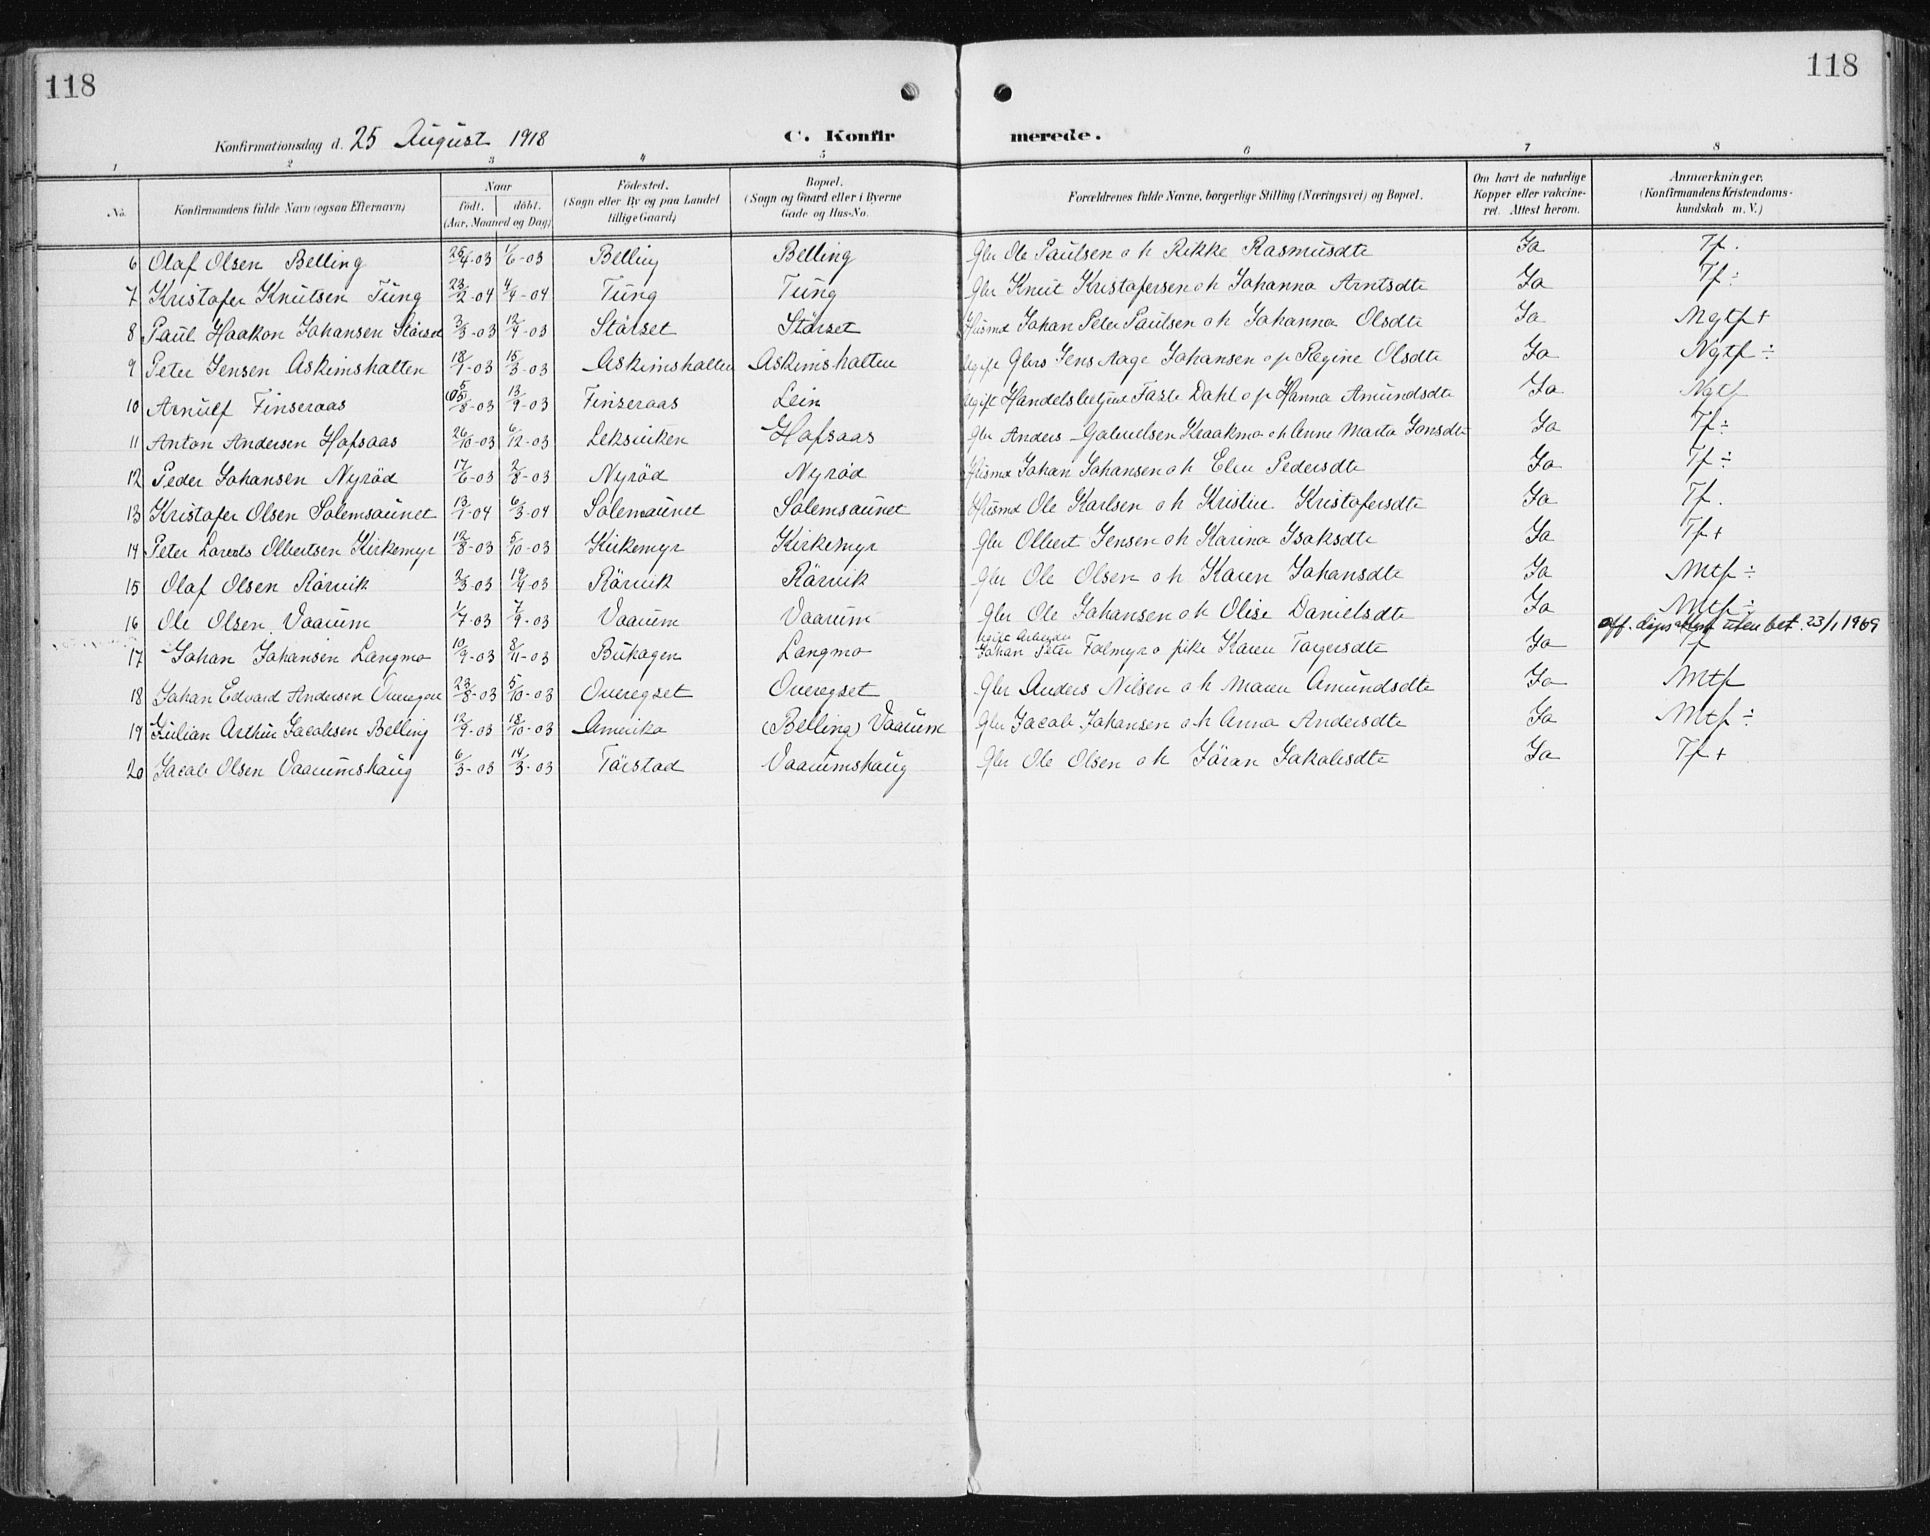 118
118
Konfirmationsdag d. 25 August 1918 C. Konfir merede.
1 2 3 4 5 6 7 8
No. Konfirmandens fulde Navn (ogsaa Efternavn) Naar født, døbt. (Aar, Maaned og Dag) Fødested. (Sogn eller By og paa Landet tillige Gaard) Bopæl. (Sogn og Gaard eller i Byerne Gade og Hus-No. Forældrenes fulde Navne, borgerlige Stilling (Næringsvei) og Bopæl. Om havt de naturlige Kopper eller vakcineret. Attest herom. Anmærkninger. (Konfirmandens Kristendomskundskab m. V.)
6 Olaf Olsen Belling 25/4-03 1/6-03 Belling Belling Gbr Ole Paulsen o h Rikke Rasmusdte Ja Tf.
7 Kristofer Knutsen Tung 23/2-04 4/4-04 Tung Tung Gbr Knut Kristofersen o h Johanna Arntsdte Ja Tf÷
8 Paul Haakon Johansen Störset 3/3-03 12/4-03 Störset Störset Husmd Johan Peter Paulsen o h Johanna Olsdte Ja Mgtf+
9 Peter Jensen Askimshalten 18/1-03 15/3-03 Askimshalten Askimshalten Ugift Gbrs Jens Aage Johansen o p Regine Olsdte Ja Ngtf÷
10 Arnulf Finseraas 5/8-03 13/9-03 Finseraas Lein Ugift Handelsbetjent Faste Dahl o p Hanna Amundsdte Ja Ngtf
11 Anton Andersen Hofsaas 26/10-03 6/12-03 Leksviken Hofsaas Gbr Anders Gabrielsen Kraakmo o h Anne Marta Jonsdte Ja Tf÷
12 Peder Johansen Nyröd 17/6-03 2/8-03 Nyröd Nyröd Husmd Johan Johansen o h Elen Pedersdte Ja Tf÷
13 Kristofer Olsen Solemsaunet 13/1-04 6/3-04 Solemsaunet Solemsaunet Husmd Ole Karlsen o h Kristine Kristofersdte Ja Tf.
14 Peter Olbertsen Kirkemyr 12/8-03 5/10-03 Kirkemyr Kirkemyr Gbr Olbert Jensen o h Karina Isaksdte Ja Tf+
15 Olaf Olsen Rörvik 2/3-03 19/4-03 Rörvik Rörvik Gbr Ole Olsen o h Karen Johansdte Ja Mtf÷
16 Ole Olsen Vaarum 1/7-03 7/9-03 Vaarum Vaarum Gbr Ole Johansen o h Olise Danielsdte Ja Mtf÷
off. uten bet. 23/1 1969
17 Johan Johansen Langmo 10/9-03 8/11-03 Bukagen Langmo Ugift Arbeider Johan Peter Falmyr o pike Karen Torgersdte Ja Tf
18 Johan Edvard Andersen Overegset 23/8-03 5/10-03 Overegset Overegset Gbr Anders Nilsen o h Maren Amundsdte Ja Mtf
19 Julian Arthur Jacobsen Belling 12/9-03 18/10-03 Amerika (Belling) Vaarum Gbr Jacob Johansen o h Anna Andersdte Ja Mtf÷
20 Jacob Olsen Vaarumshaug 6/3-03 14/3-03 Törstad Vaarumshaug Gbr Ole Olsen o h Jöran Jakobsdte Ja Tf+